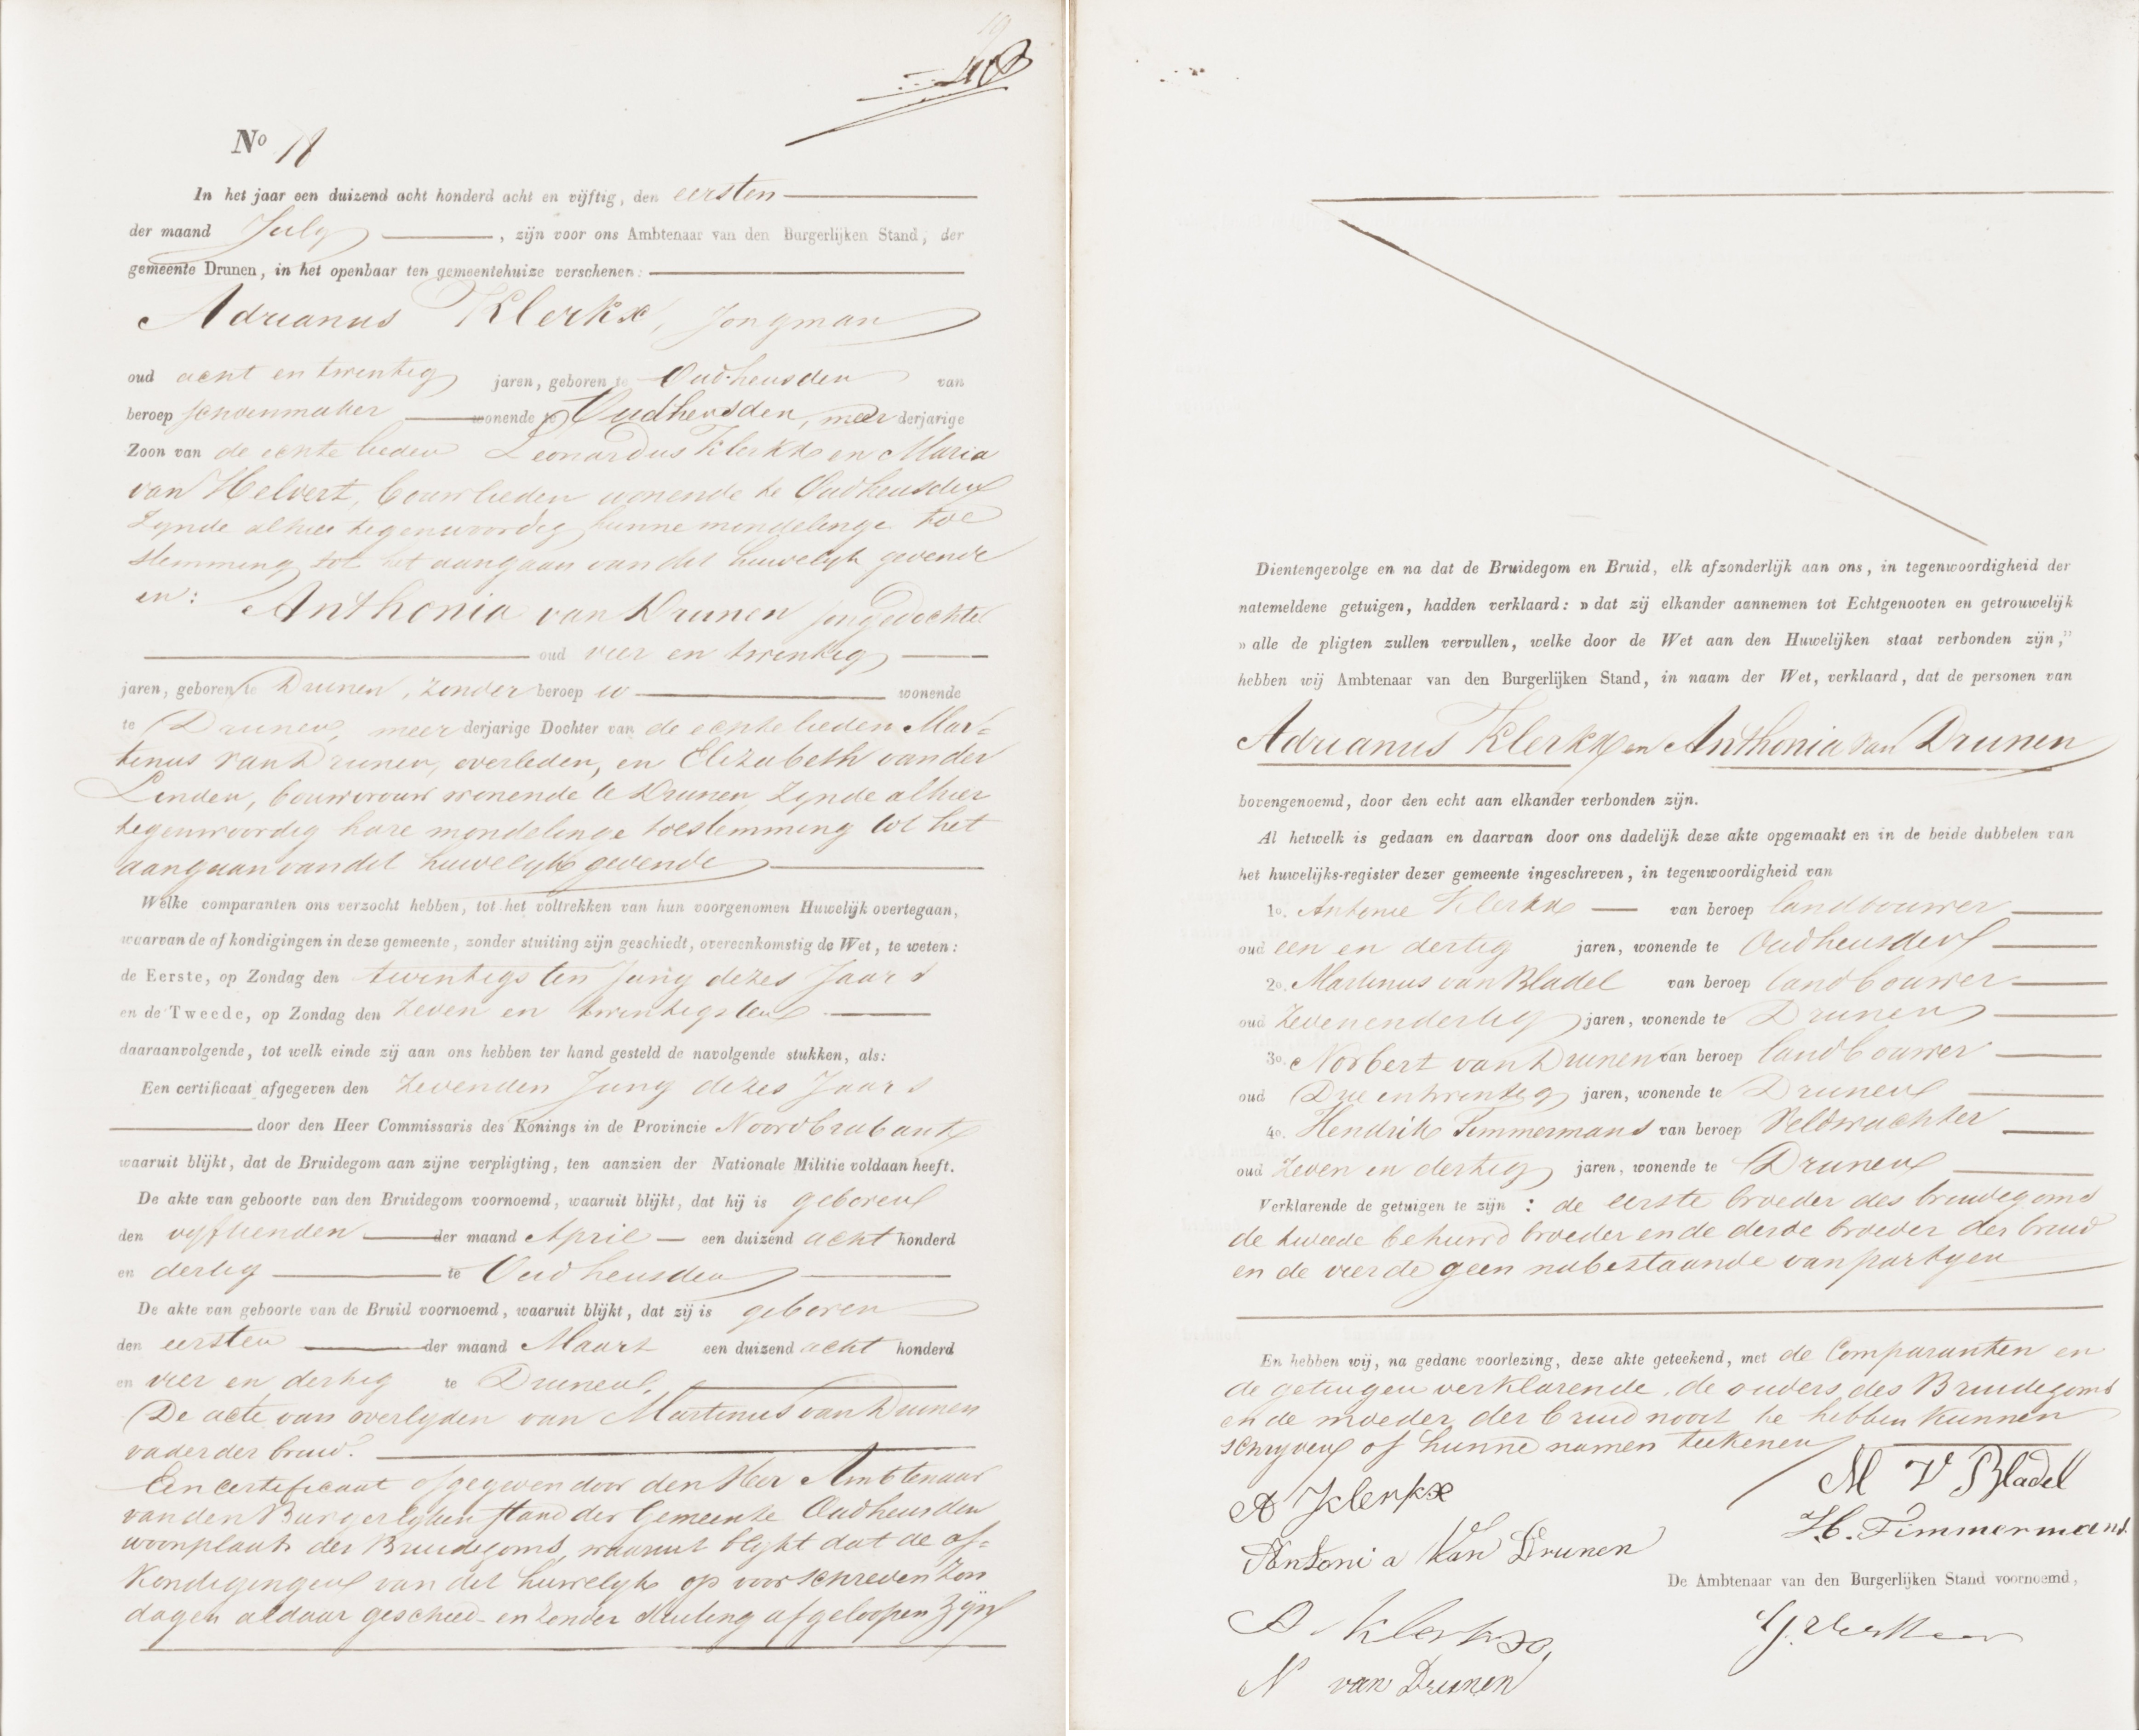 No 11
In het jaar een duizend acht honderd acht en vijftig, den eersten
der maand July, zijn voor ons Ambtenaar van den Burgerlijken Stand, der
gemeente Drunen, in het openbaar ten gemeentehuize verschenen:
Adrianus Klerkx, jongman
oud acht en twintig jaren, geboren te Oudheusden van
beroep schoenmaker wonende te Oudheusden, meerderjarige
Zoon van de echte lieden Leonardus Klerkx en Maria
van Helvert, bouwlieden wonende te Oudheusden
zynde alhier tegenwoordig hunne mondelinge toe
stemming tot het aangaan van dit huwelyk gevende
en: Anthonia van Drunen jongedochter
oud vier en twintig
jaren, geboren te Drunen, zonder beroep wonende
te Drunen, meerderjarige Dochter van de echte lieden Mar=
tinus van Drunen, overleden, en Elizabeth van der
Linden, bouwvrouw wonende te Drunen zynde alhier
tegenwoordig hare mondelinge toestemming tot het
aangaan van dit huwelyk gevende
Welke comparanten ons verzocht hebben, tot het voltrekken van hun voorgenomen Huwelijk overtegaan,
waarvan de afkondigingen in deze gemeente, zonder stuiting zijn geschiedt, overeenkomstig de Wet, te weten:
de Eerste, op Zondag den twintigsten Juny dezes Jaars
en de Tweede, op Zondag den zeven en twintigsten
daaraanvolgende, tot welk einde zij aan ons hebben ter hand gesteld de navolgende stukken, als:
Een certificaat afgegeven den zevenden Juny dezes Jaars
door den Heer Commissaris des Konings in de Provincie Noordbrabant
waaruit blijkt, dat de Bruidegom aan zijne verpligting, ten aanzien der Nationale Militie voldaan heeft.
De akte van geboorte van den Bruidegom voornoemd, waaruit blijkt, dat hij is geboren
den vyftienden der maand April een duizend acht honderd
en dertig te Oudheusden
De akte van geboorte van de Bruid voornoemd, waaruit blijkt, dat zij is geboren
den eersten der maand Maart een duizend acht honderd
en vier en dertig te Drunen,
De acte van overlyden van Martinus van Drunen
vader der bruid.
Een certificaat afgegeven door den Heer Ambtenaar
van den Burgerlyken stand der Gemeente Oudheusden
woonplaats des Bruidegoms, waaruit blykt dat de af=
kondigingen van dit huwelyk op voorschreven Zon
dagen aldaar geschied en zonder stuiting afgeloopen zyn
Dientengevolge en na dat de Bruidegom en Bruid, elk afzonderlijk aan ons, in tegenwoordigheid der
natemeldene getuigen, hadden verklaard: » dat zij elkander aannemen tot Echtgenooten en getrouwelijk
» alle de pligten zullen vervullen, welke door de Wet aan den Huwelijken staat verbonden zijn,"
hebben wij Ambtenaar van den Burgerlijken Stand, in naam der Wet, verklaard, dat de personen van
Adrianus Klerkx en Anthonia van Drunen
bovengenoemd, door den echt aan elkander verbonden zijn.
Al hetwelk is gedaan en daarvan door ons dadelijk deze akte opgemaakt en in de beide dubbelen van
het huwelijks-register dezer gemeente ingeschreven, in tegenwoordigheid van
1o. Antonie Klerkx van beroep landbouwer
oud een en dertig jaren, wonende te Oudheusden
2o. Martinus van Bladel van beroep landbouwer
oud zevenendertig jaren, wonende te Drunen
3o. Norbert van Drunen van beroep landbouwer
oud Drie en twintig jaren, wonende te Drunen
4o. Hendrik Timmermans van beroep Veldwachter
oud zeven en dertig jaren, wonende te Drunen
Verklarende de getuigen te zijn : de eerste broeder des bruidegoms
de tweede behuwd broeder en de derde broeder der bruid
en de vierde geen nabestaande van partyen
En hebben wij, na gedane voorlezing, deze akte geteekend, met de Comparanten en
de getuigen verklarende de ouders des Bruidegoms
en de moeder der bruid nooit te hebben kunnen
schryven of hunne namen teekenen
A Klerkx
M V Bladel
H. Timmermans
Antonia Van Drunen
De Ambtenaar van den Burgerlijken Stand voornoemd,
A Klerkx
N van Drunen